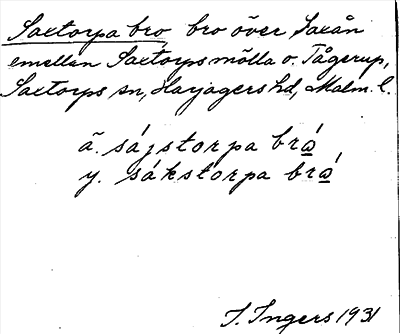 Saxtorpa bro bro över Saxån
emellan Saxtorps mölla o. Tågerup,
Saxtorps sn, Harjagers hd, Malm. l.
ä. sájstorpa brá
y. sákstorpa brá
I. Ingers 1931